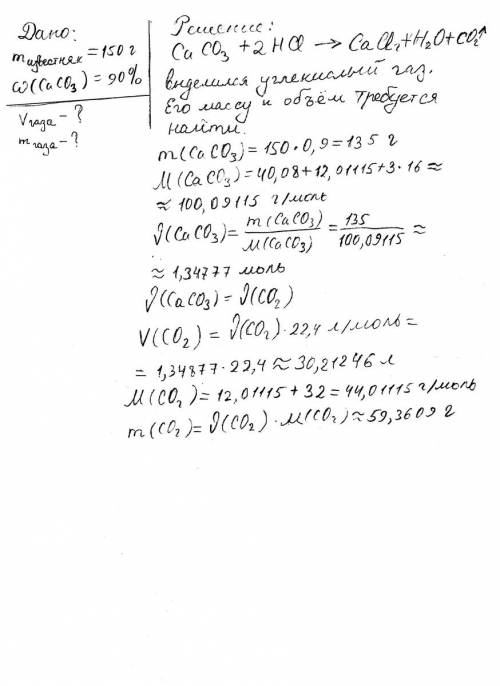 Дано:
m известняк = 150 г
ω(CaCO₃) = 90%
Vгаза - ?
mгаза - ?
Решение:
CaCO₃ + 2HCl → CaCl₂ + H₂O + CO₂↑
выделился углекислый газ.
Его массу и объём требуется
найти.
m(CaCO₃) = 150 · 0,9 = 135 г
M(CaCO₃) = 40,08 + 12,01115 + 3 · 16 ≈
≈ 100,09115 г/моль
ϑ(CaCO₃) = m(CaCO₃)/M(CaCO₃) = 135/100,09115 ≈
≈ 1,34777 моль
ϑ(CaCO₃) = ϑ(CO₂)
V(CO₂) = ϑ(CO₂) · 22,4 л/моль =
= 1,34877 · 22,4 ≈ 30,21246 л
M(CO₂) = 12,01115 + 32 = 44,01115 г/моль
m(CO₂) = ϑ(CO₂) · M(CO₂) ≈ 59,3609 г